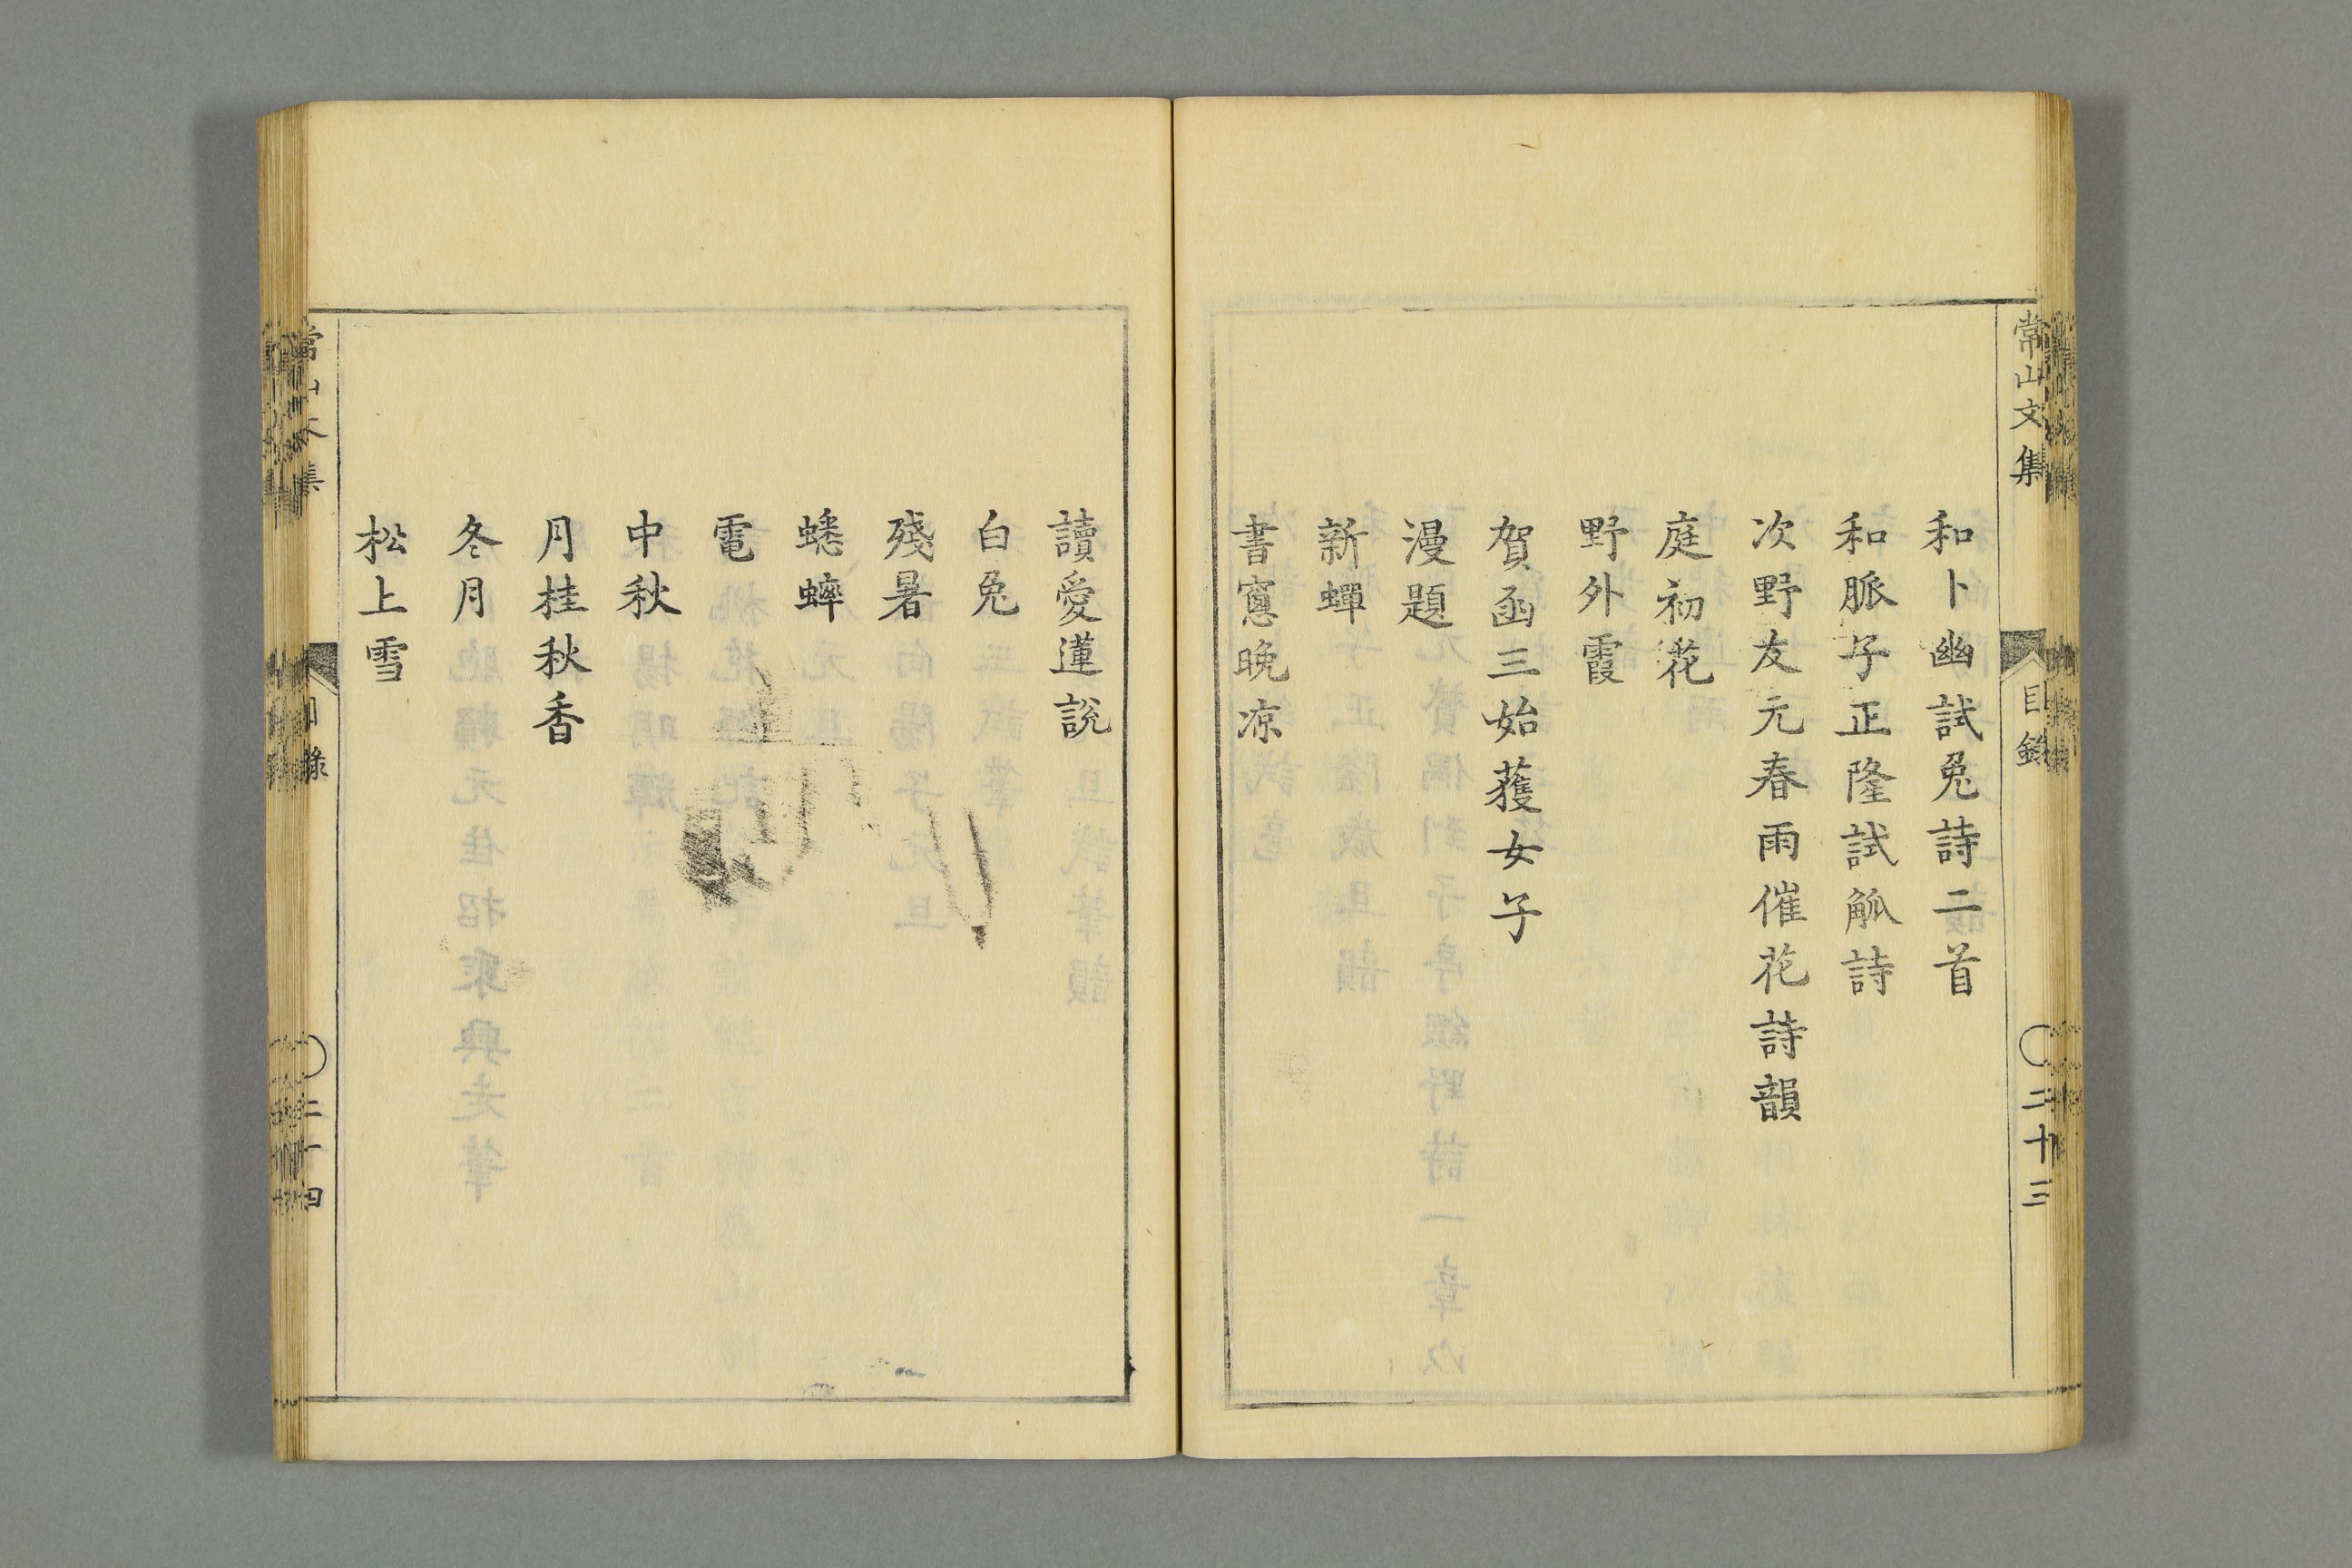 常山文集
目錄
二十三
和卜幽試兔詩二首
和脈子正隆試觚詩
次野友元春雨催花詩韻
庭初花
野外霞
賀函三始獲女子
漫題
新蟬
書窻晩凉
讀愛蓮說
白兔
殘暑
蟋蟀
電
中秋
月桂秋香
冬月
松上雪
常山文集
目錄
二十四